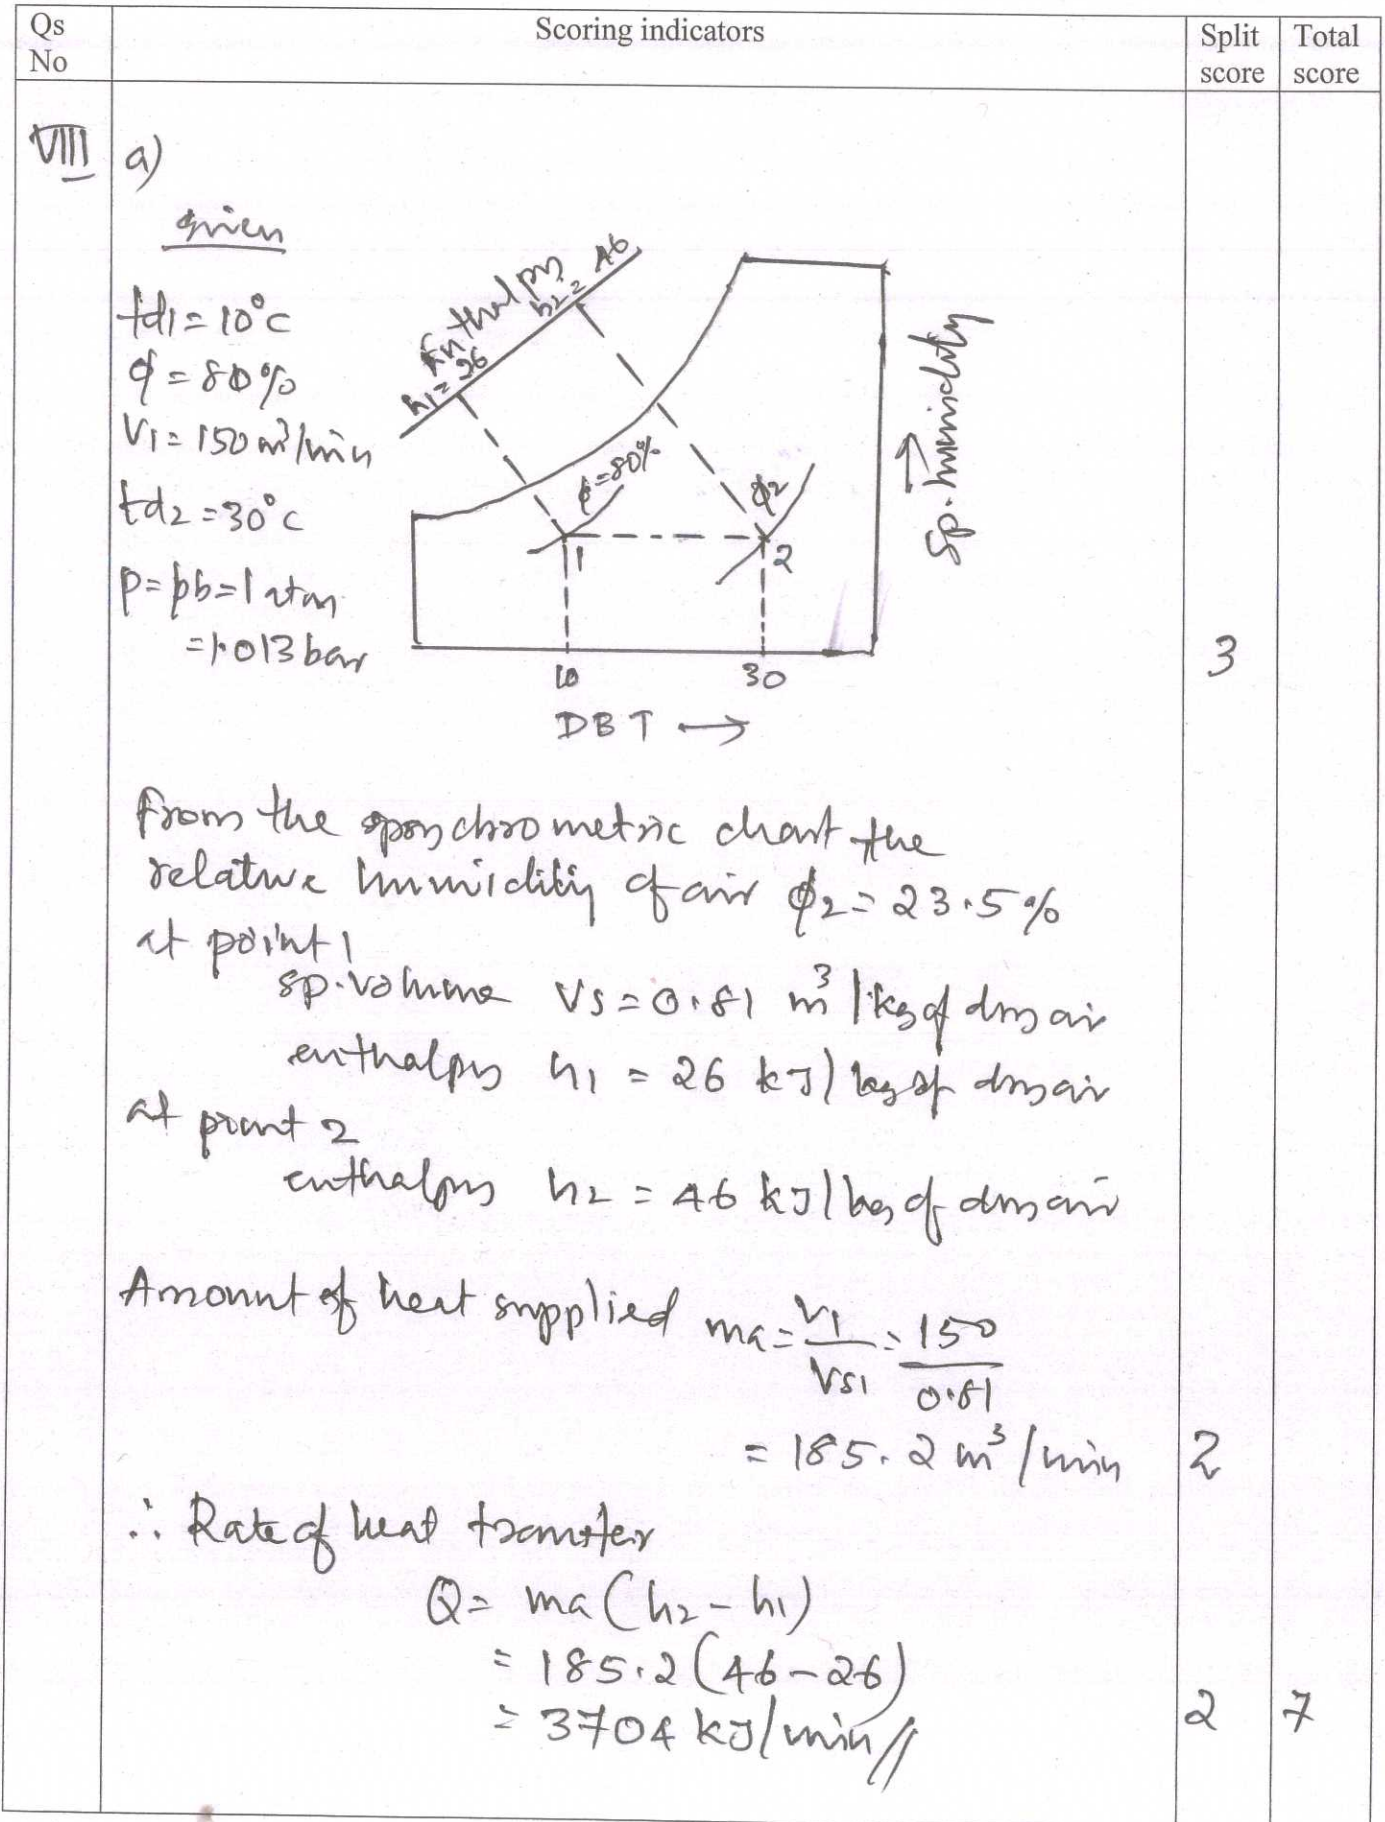 Qs No
Scoring indicators
Split score
Total score
VIII a)
given
td1 = 10°C
ϕ = 80%
V1 = 150 m³/min
td2 = 30°C
p = pb = 1 atm
= 1.013 bar
Enthalpy
h1 = 26
h2 = 46
ϕ = 80%
ϕ2
1
2
Sp. humidity
10
30
DBT →
3
From the psychrometric chart the
relative humidity of air ϕ2 = 23.5%
at point 1
sp. volume Vs = 0.81 m³/kg of dry air
enthalpy h1 = 26 kJ/kg of dry air
at point 2
enthalpy h2 = 46 kJ/kg of dry air
Amount of heat supplied ma = V1/Vs1 = 150/0.81
= 185.2 m³/min
2
∴ Rate of heat transfer
Q = ma (h2 - h1)
= 185.2 (46 - 26)
= 3704 kJ/min //
2
7